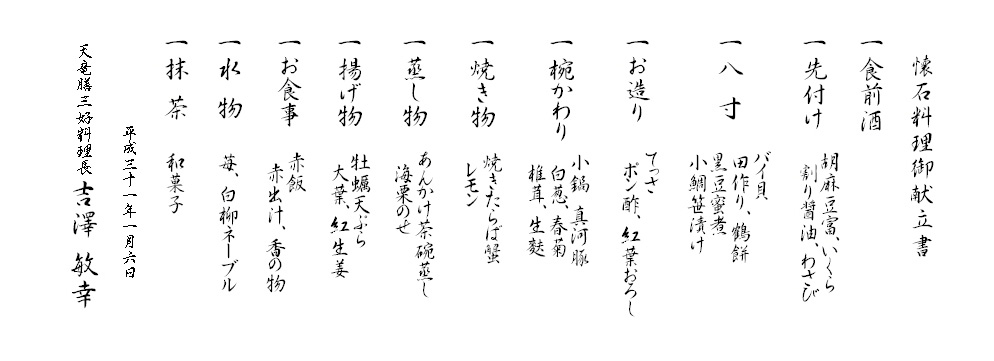 懐石料理御献立書
一食前酒
一先付け
胡麻豆富、いくら
割り醤油、わさび
一八寸
バイ貝
田作り、鶴餅
黒豆蜜煮
小鯛笹漬け
一お造り
てっさ
ポン酢、紅葉おろし
一椀かわり
小鍋 真河豚
白葱、春菊
椎茸、生麩
一焼き物
焼きたらば蟹
レモン
一蒸し物
あんかけ茶碗蒸し
海栗のせ
一揚げ物
牡蠣天ぷら
大葉、紅生姜
一お食事
赤飯
赤出汁、香の物
一水物
苺、白柳ネーブル
一抹茶
和菓子
平成三十一年一月六日
天竜膳三好料理長 吉澤 敏幸